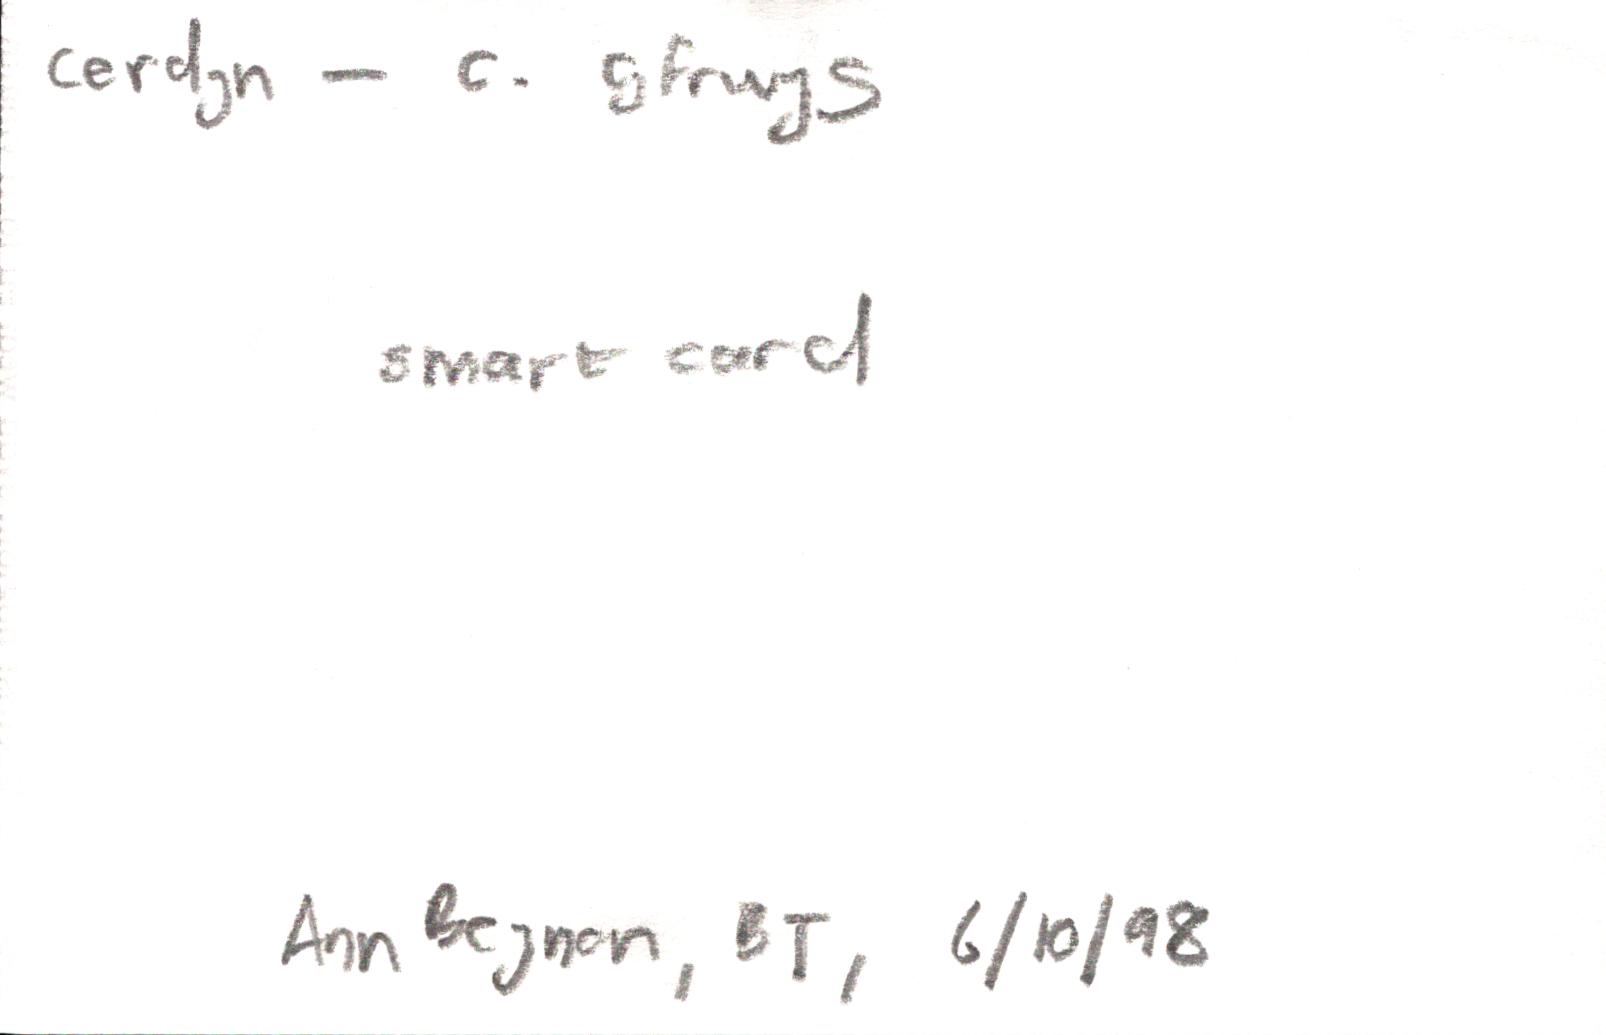 cerdyn — c. gfrwys
smart card
Ann Beynon, BT, 6/10/98